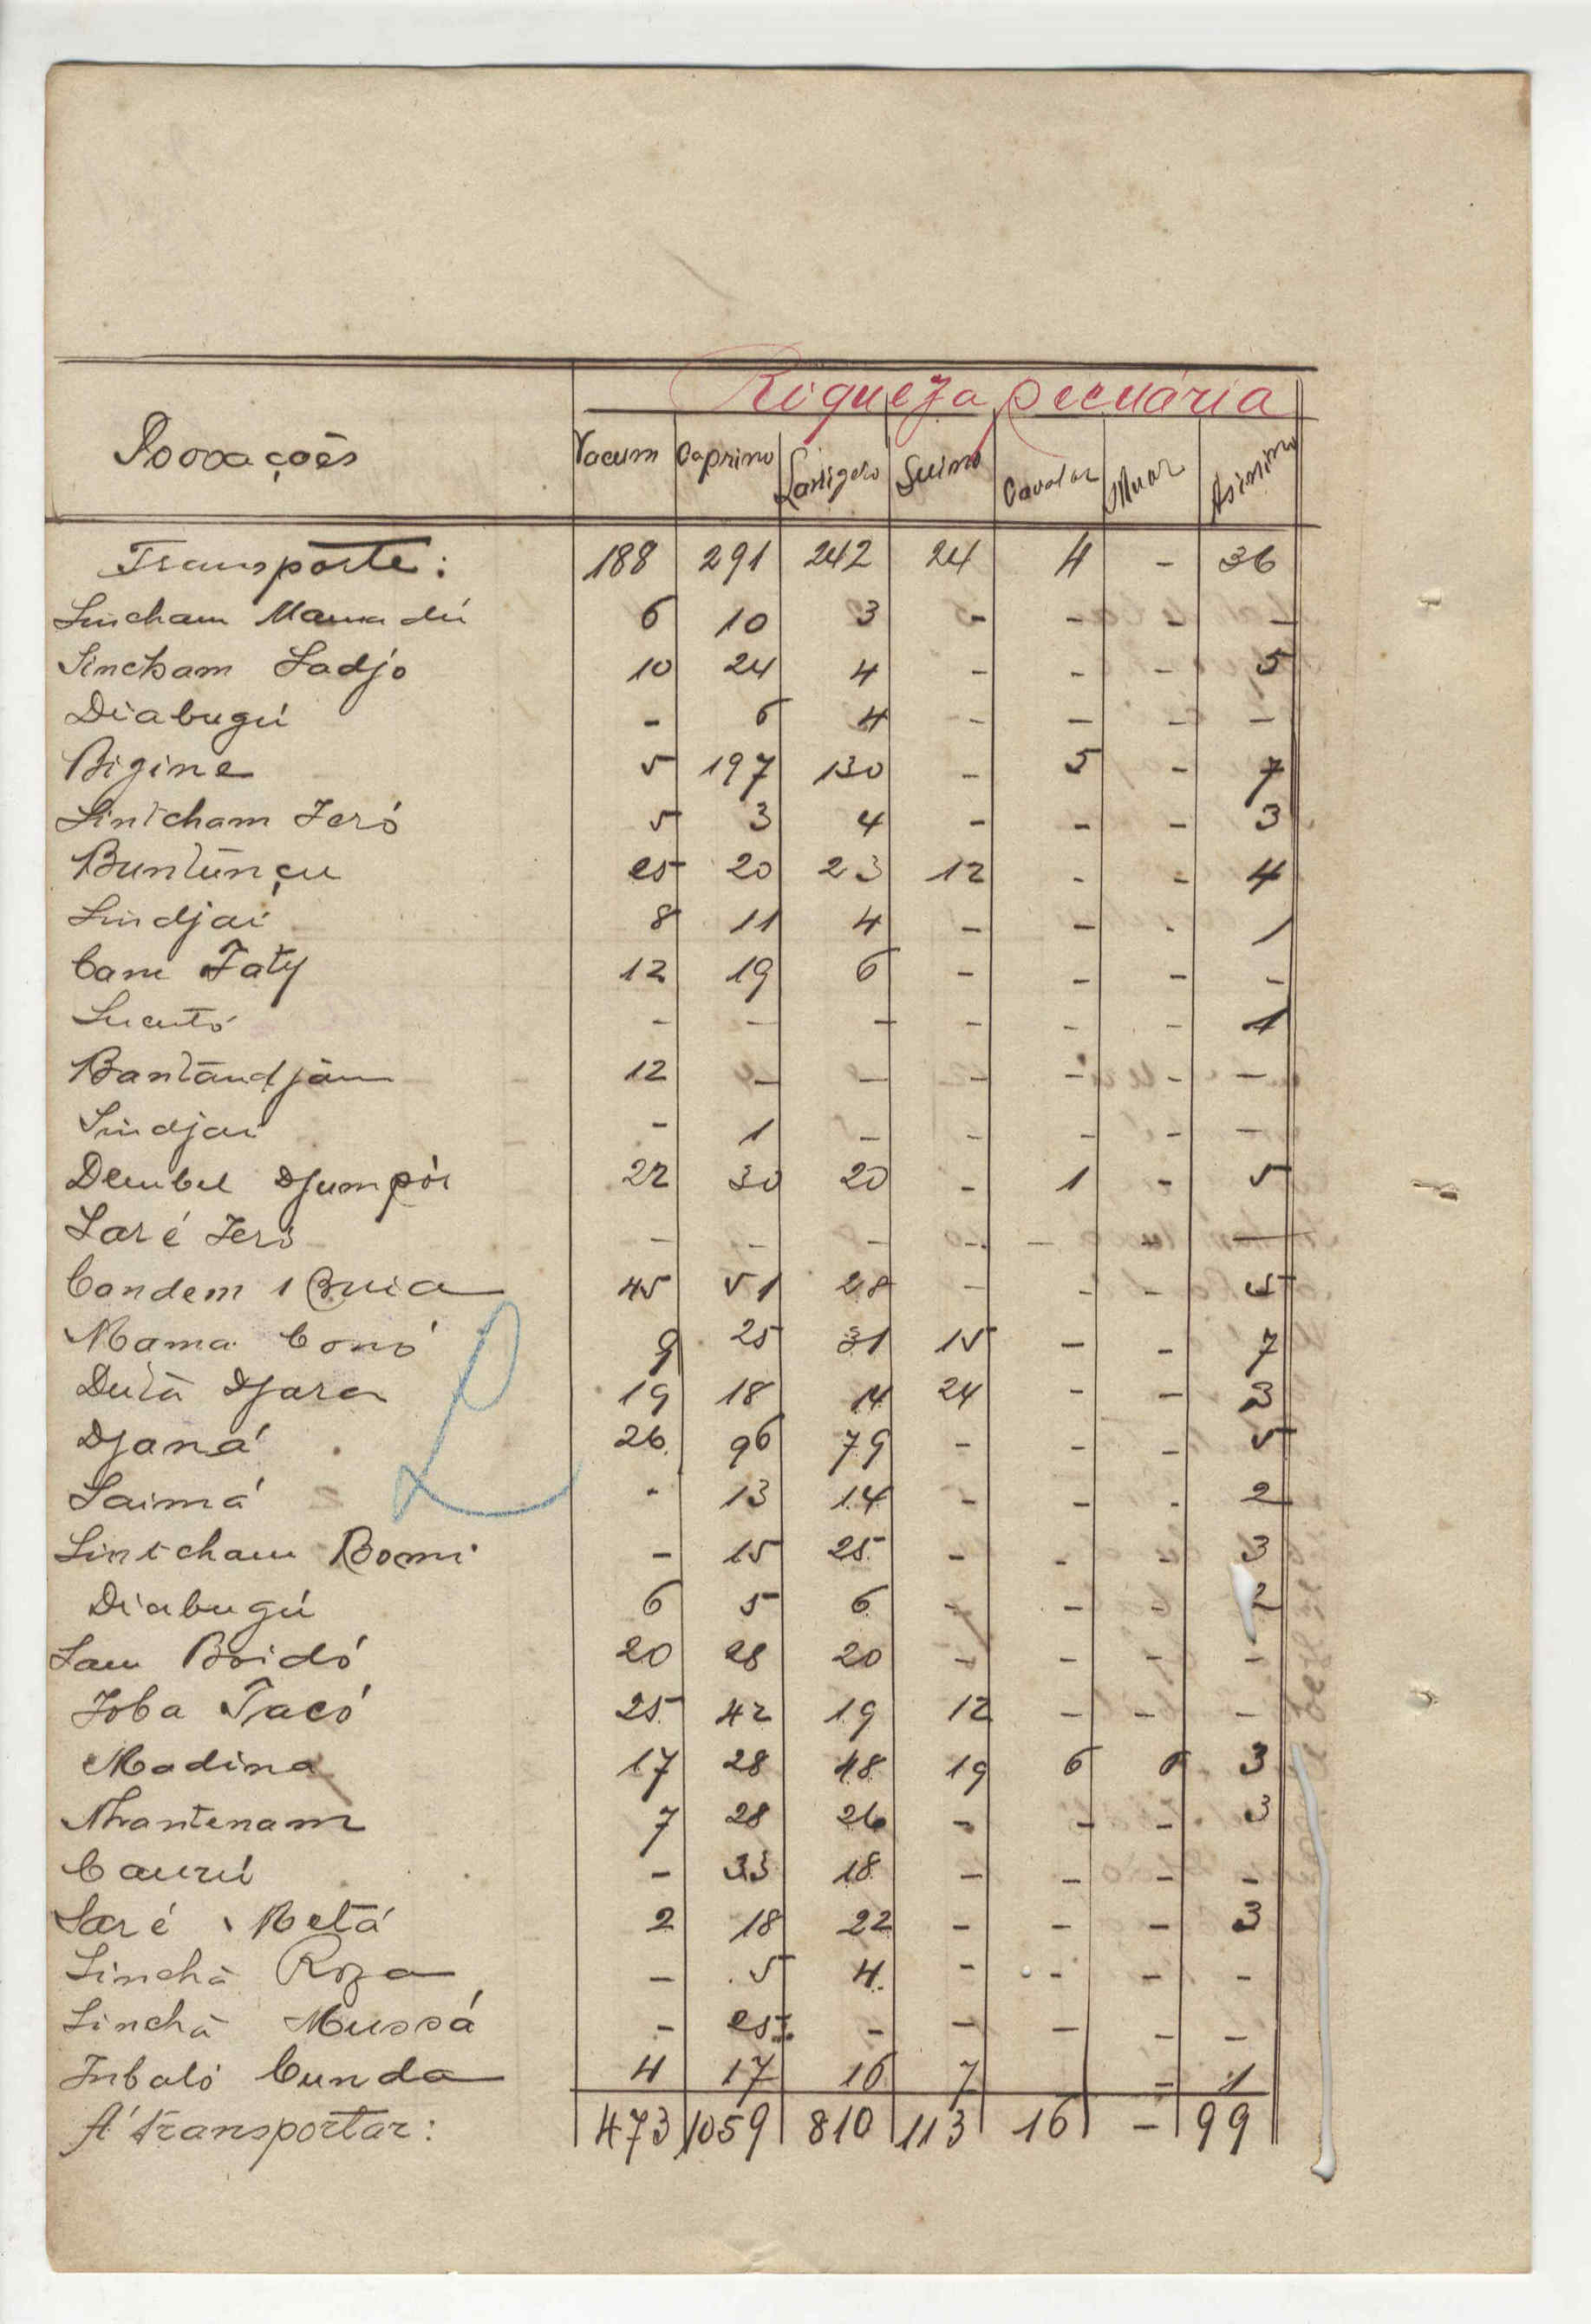 Riqueza pecuária
Povoações Vacum Caprino Lanigero Suino Cavalar Muar Asinino
Transporte: 188 291 242 24 4 - 36
Sincham Mamadú 6 10 3 - - - -
Sincham Sadjo 10 24 4 - - - 5
Diabugú - 6 4 - - - -
Bigine 5 197 130 - 5 - 7
Sintcham Ieró 5 3 4 - - - 3
Buntunçu 25 20 23 12 - - 4
Sindjai 8 11 4 - - - 1
Cam Faty 12 19 6 - - - -
Sucutó - - - - - - 1
Bantandjam 12 - - - - - -
Sindjai - 1 - - - - -
Dembel Djumpór 22 30 20 - 1 - 5
Saré Ieró - - - - - - -
Condem 45 51 28 - - - 5
Mama Conó 9 25 31 15 - - 7
Dutá Djara 19 18 14 24 - - 3
Djaná 26 96 79 - - - 5
Saimá - 13 14 - - - 2
Sintcham Bomi - 15 25 - - - 3
Diabugú 6 5 6 - - - 2
Sam Boidó 20 28 20 - - - -
Joba Tacó 25 42 19 12 - - -
Madina 17 28 48 19 6 3
Mantenam 7 28 26 - - - 3
Caurú - 33 18 - - - -
Saré Betá 2 18 22 - - - 3
Sinchã Roza - 5 4 - - - -
Sinchã Mussá - 25 - - - - -
Inbaló Cunda 4 17 16 7 - 1
Á transportar: 473 1059 810 113 16 - 99